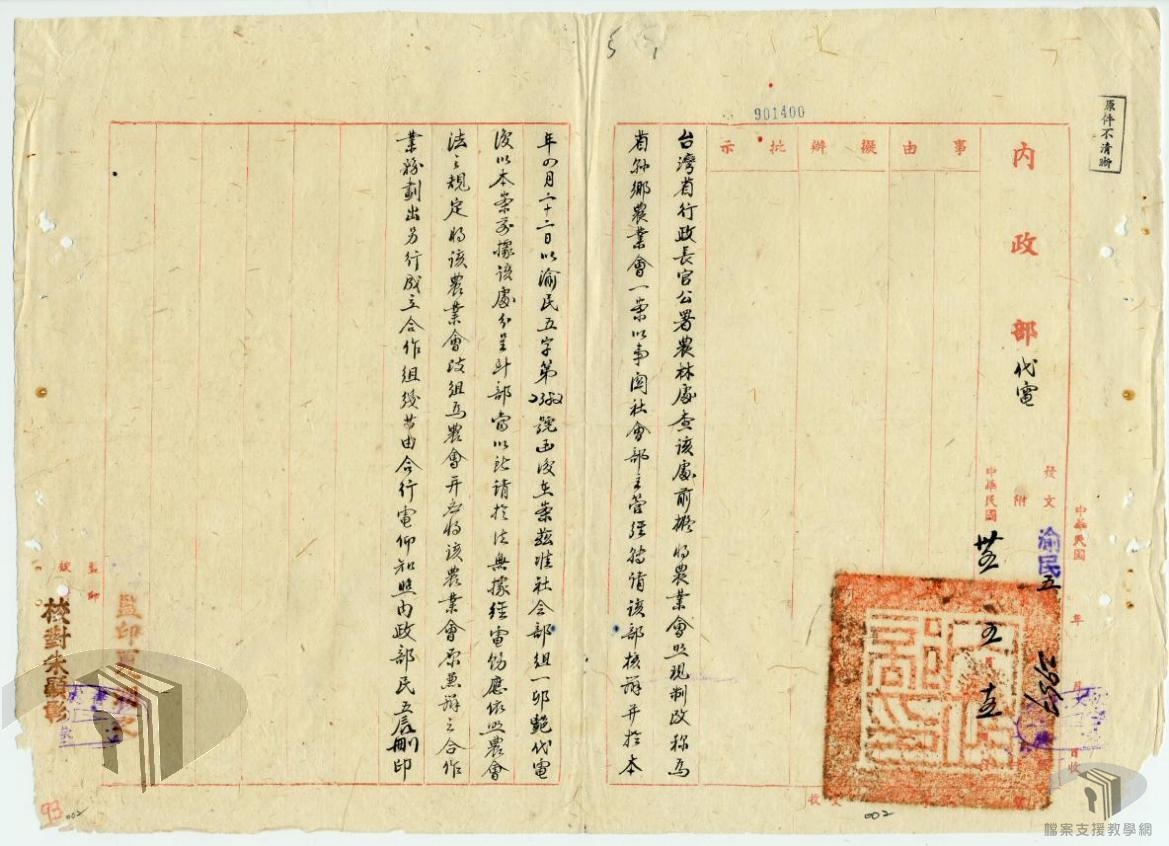 原件不清晰
901400
內政部代電
發文
渝民五
年
月
附
中華民國
中華民國
事由擬辦批示
台灣省行政長官公署農林處查該處前擬將農業會照現制改稱為
省縣鄉農業會一案以事関社會部主管經移請該部核辦并於本
年四月二十二日以渝民五字第號函復在案茲准社会部組一卯艷代電
復以本案前據該處分呈到部當以所請於法無據經電飭應依照農會
法之規定將該農業會改組為農會并应將該農業會原兼辦之合作
業務劃出另行成立合作組織等由合行電仰知照內政部民五辰刪印
監印
校對朱顯彰
93
002
002
檔案支援教學網